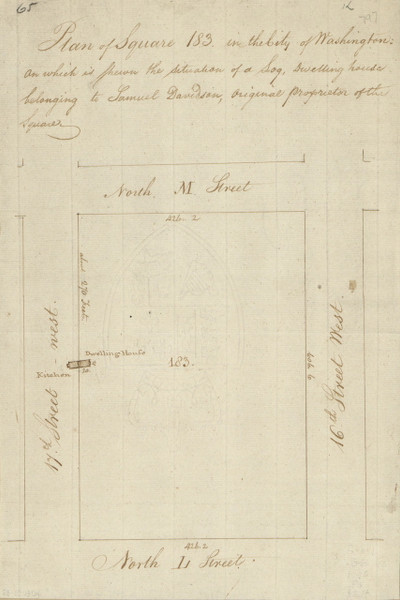 65
Plan of Square 183. in the City of Washington:
On which is shewn the situation of a Log, Dwelling house
belonging to Samuel Davidson, original proprietor of the
Square.
North M Street
426. 2
17th Street - west.
16th Street West.
Dwelling House
Kitchen
183.
606 6
426. 2
North L Street.